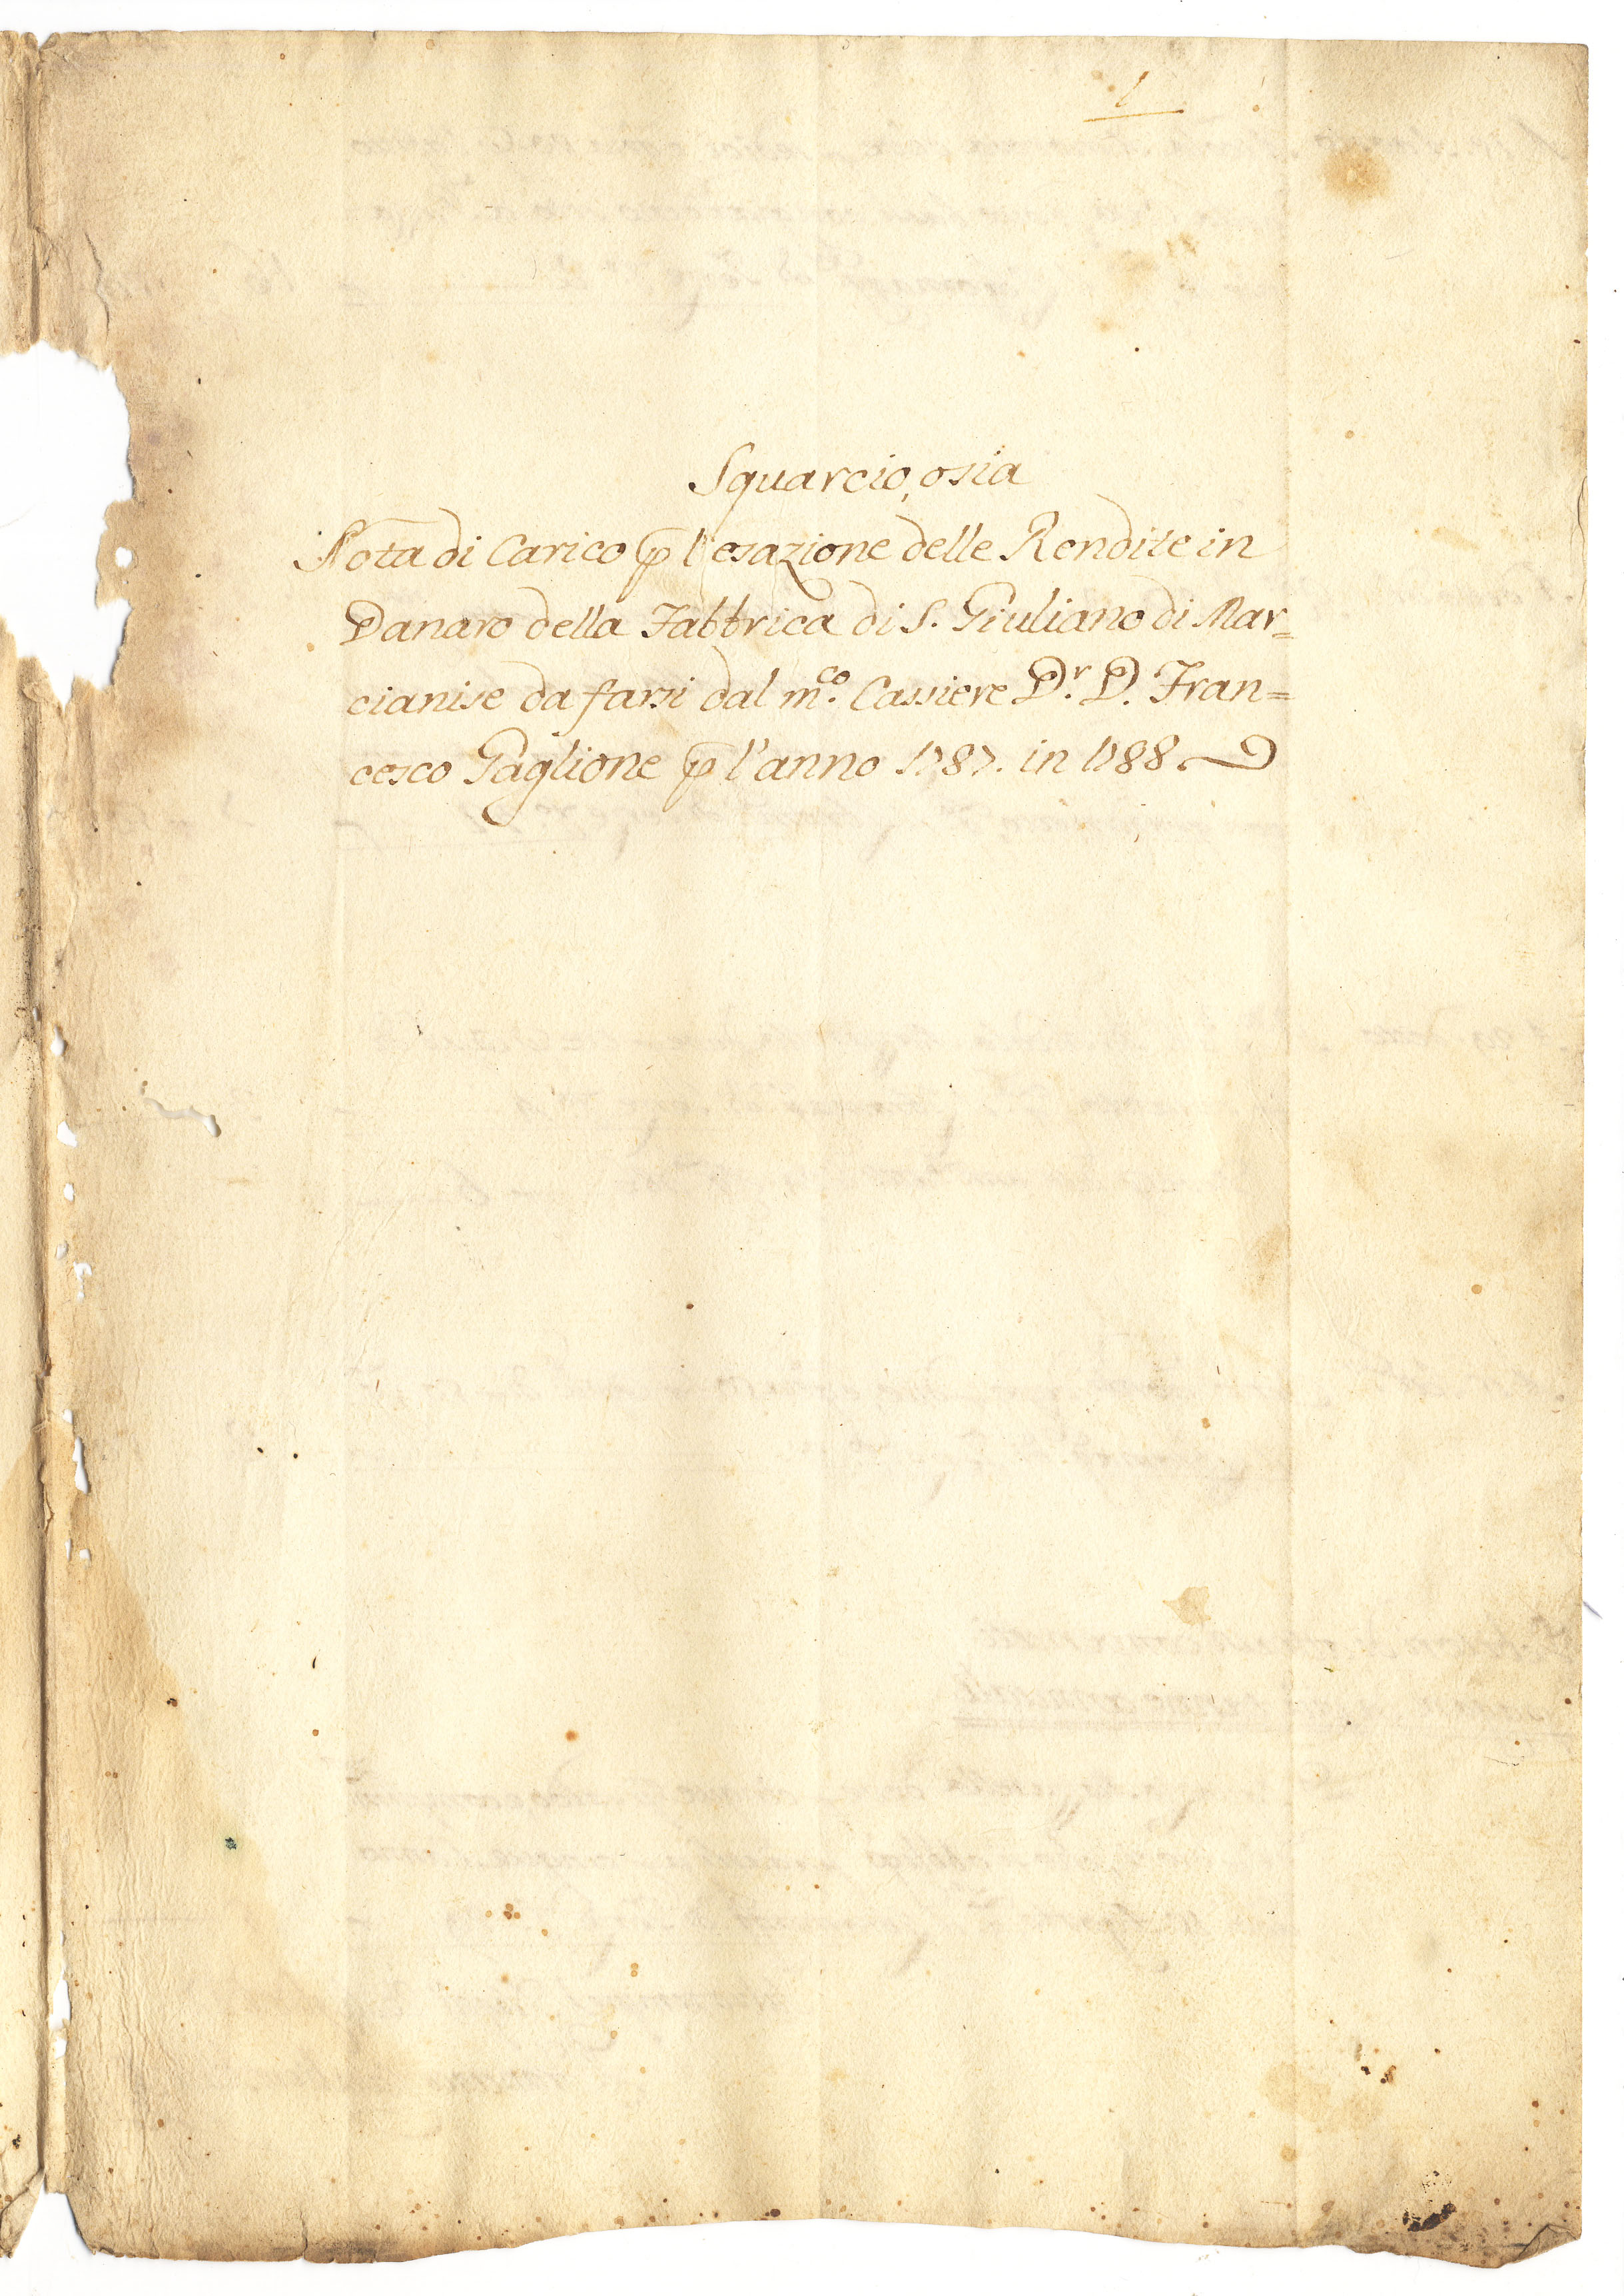 1
Squarcio, osia
Nota di Carico p l'esazione delle Rendite in
Danaro della Fabbrica di S. Giuliano di Mar=
cianise da farsi dal m.co Cassiere D.r D. Fran=
cesco Paglione p l'anno 1787. in 1788.